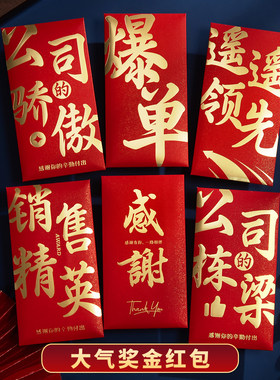 公司的骄傲
感谢你的辛勤付出
爆单
遥遥领先
销售精英
AWARD
感谢你的辛勤付出
感謝
感谢有你，一路相伴
Thank You
公司的栋梁
感谢你的辛勤付出
大气奖金红包